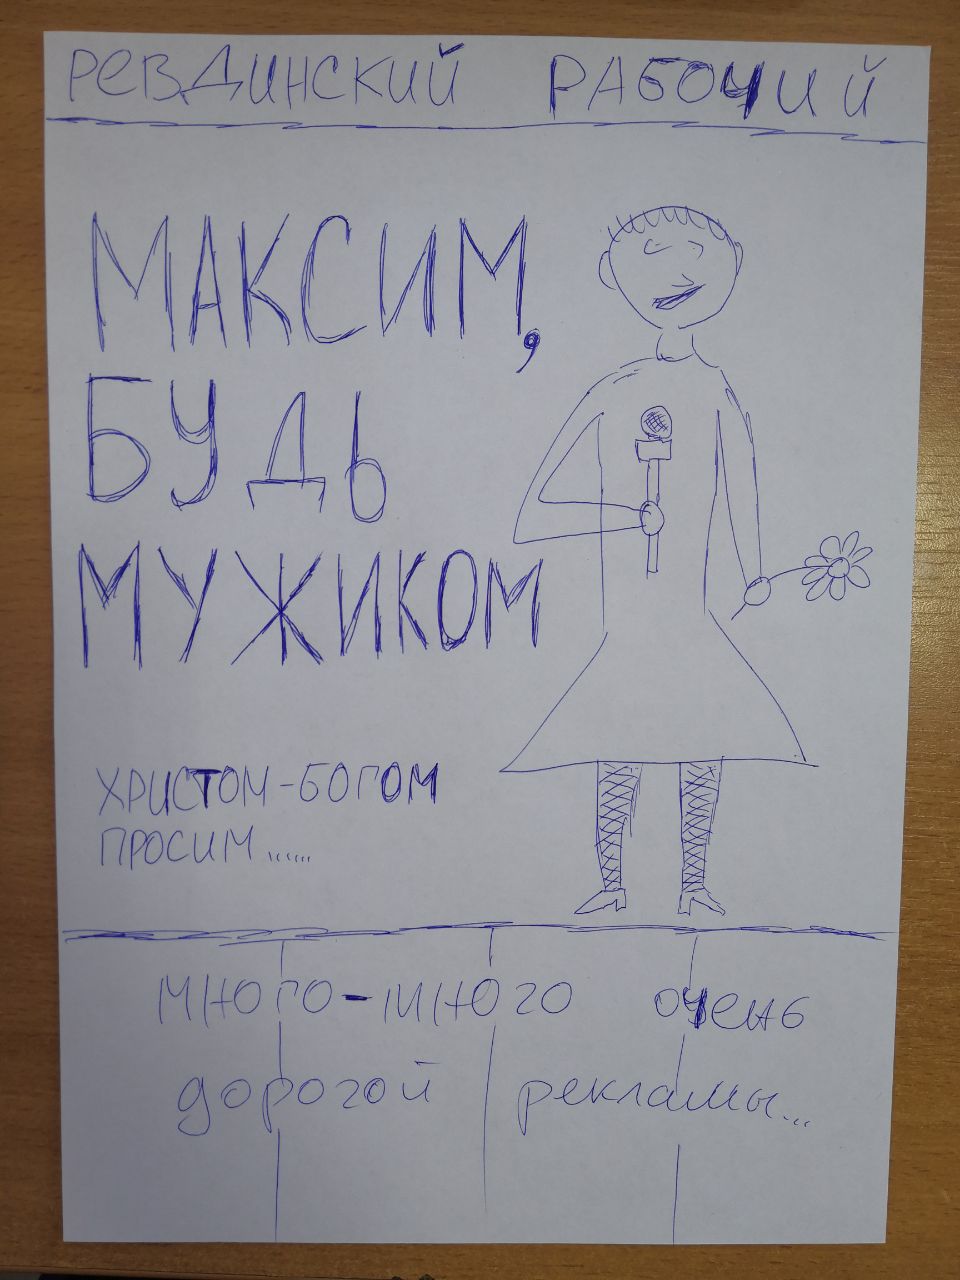 РЕВДИНСКИЙ РАБОЧИЙ
МАКСИМ,
БУДЬ
МУЖИКОМ
ХРИСТОМ-БОГОМ
ПРОСИМ......
много-много очень
дорогой рекламы...